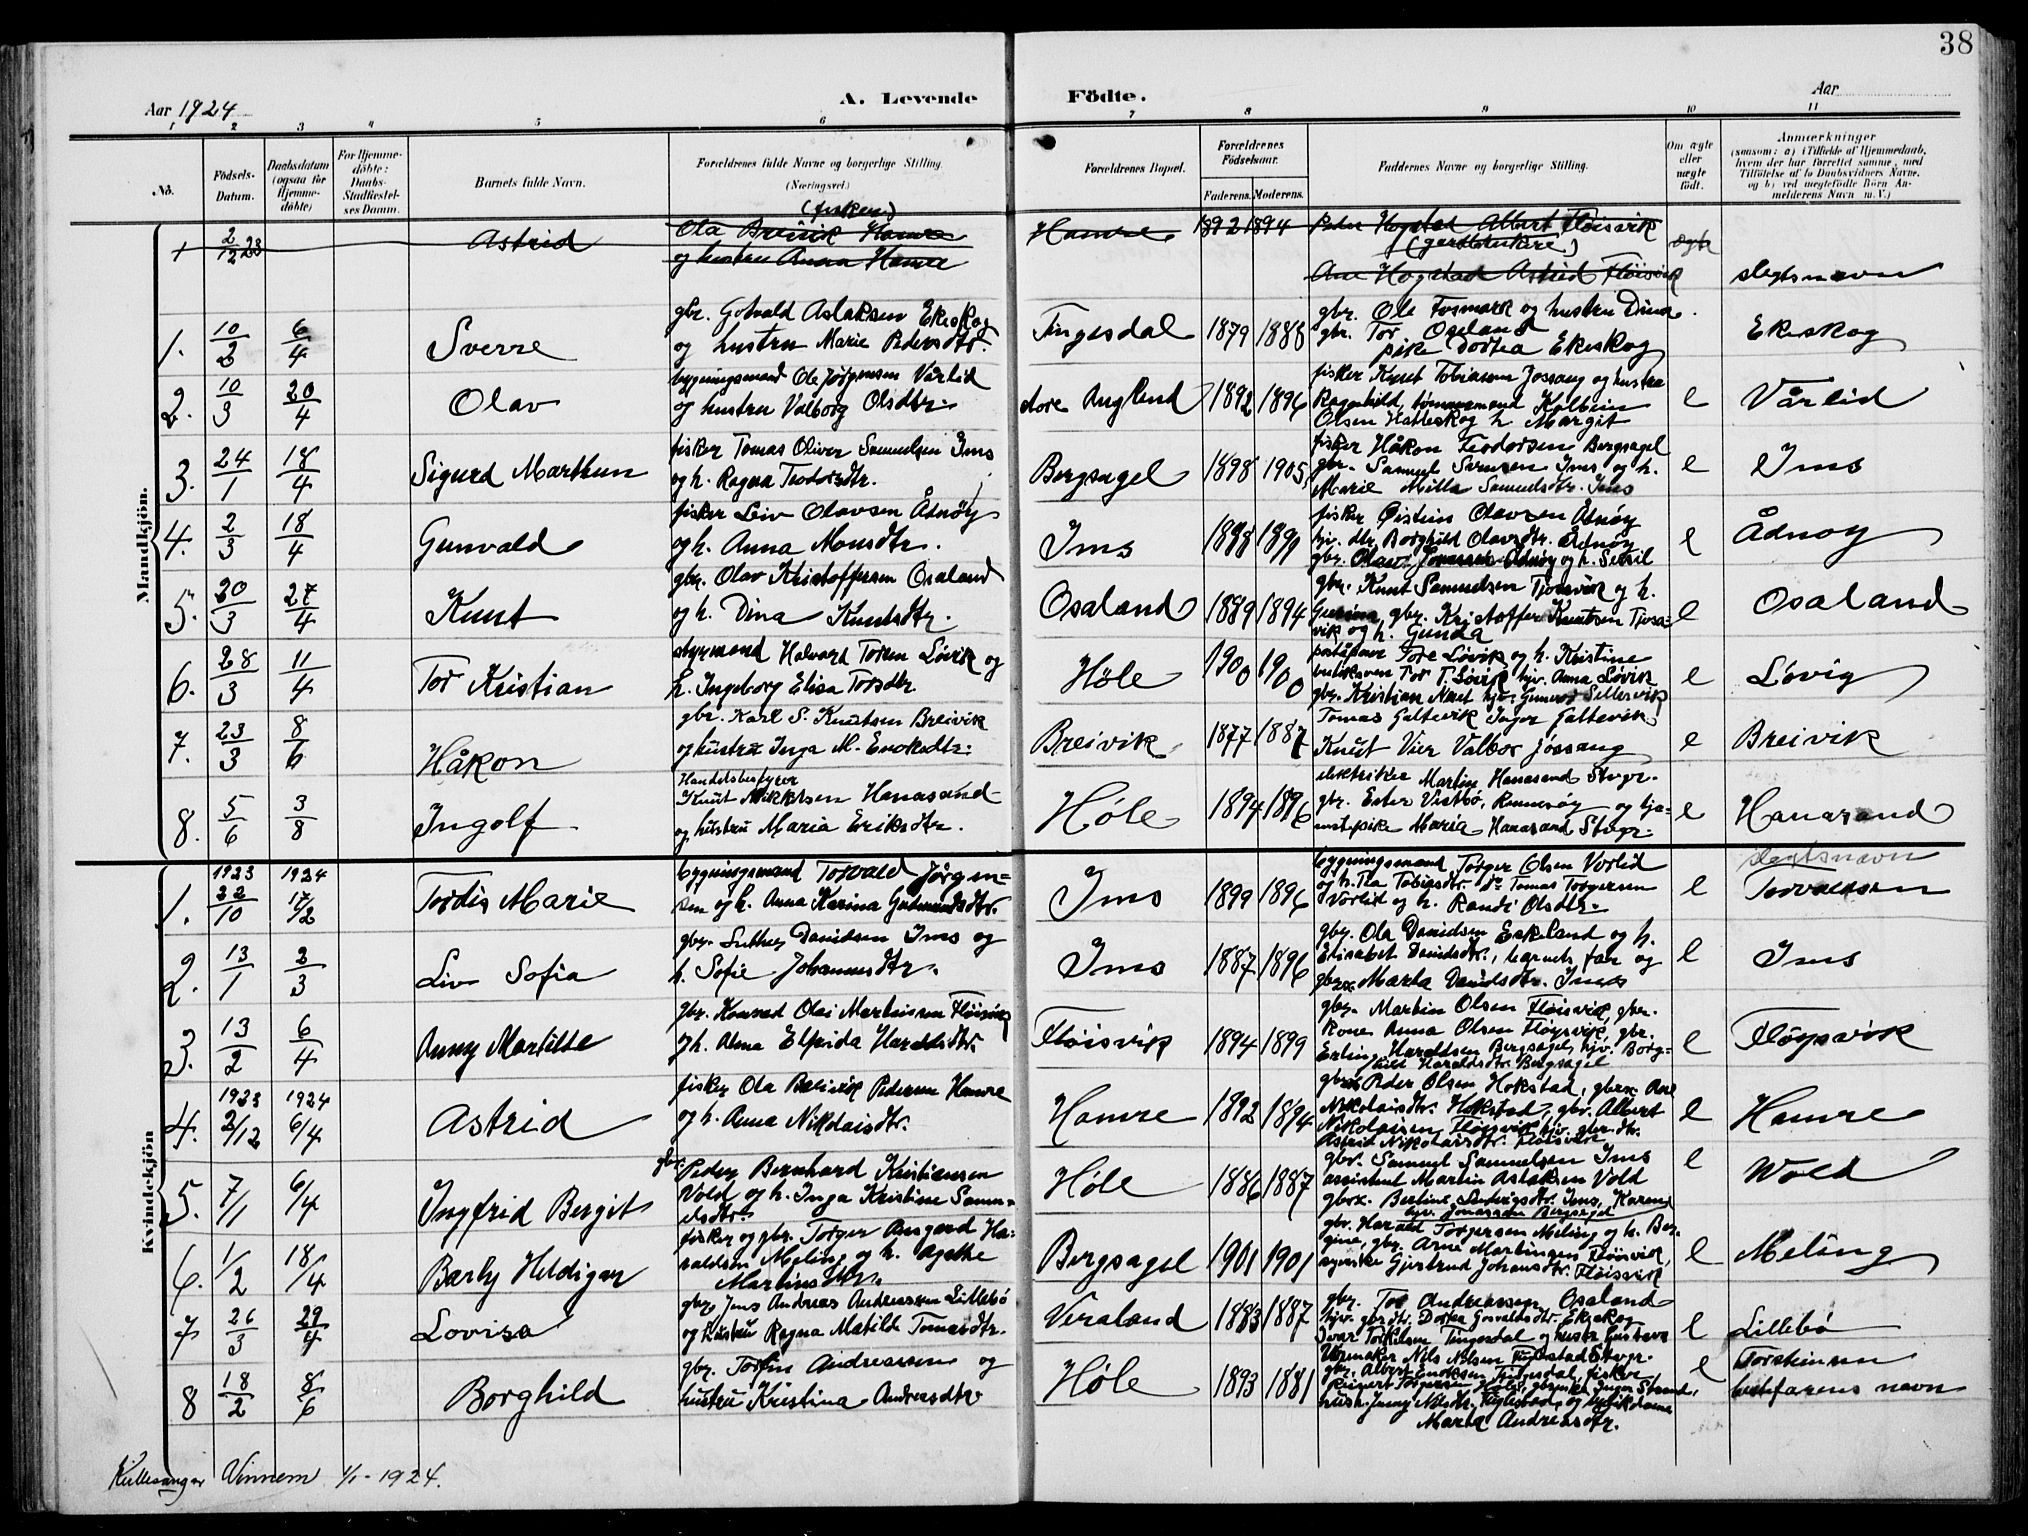 38
Aar 1924
A. Levende Födte.
Aar
1 2 3 4 5 6 7 8 9 10 11
No.
Födsels-Datum.
Daabsdatum (ogsaa for Hjemme-döbte)
For Hjemme-döbte: Daabs-Stadfæstel-ses Datum.
Barnets fulde Navn.
Forældrenes fulde Navne og borgerlige Stilling.
(Næringsvei.)
Forældrenes Bopæl.
Forældrenes Födselsaar.
Faderens. Moderens.
Faddernes Navne og borgerlige Stilling.
Om ægte eller uægte födt.
Anmærkninger
(saasom: a) i Tilfælde af Hjemmedaab, hvem der har forrettet samme, med Tilföielse af to Daabsvidners Navne, og b) ved uægtefödte Börn An-melderens Navn m. V.)
Mandkjön.
1 2/12 23 Astrid
(fisker)
Ola Breivik Hamre
og hustru Anna Hamre
Hamre 1892 1894
Peder Hogstad Albert Fløisvik
(gardbrukere)
Ane Hogstad Astrid Fløisvik
ægte
slegtsnavn
1. 10/2 6/4 Sverre
gbr. Gotvald Aslaksen Ekeskog
og hustru Marie Pedersdtr.
Tingesdal 1879 1888
gbr. Ole Fosmark og hustru Dina
gbr. Tor Oseland
pike Dortea Ekeskog
Ekeskog
2. 10/3 20/4 Olav
bygningsmand Ole Jørgensen Vårlid
og hustru Valborg Olsdtr.
1892 1896
fisker Knut Tobiassen Jossang og hustru
Ragnhild, tømmermand Kolbein
Olsen Hatleskog h. Margit
e Vårlid
3. 24/1 18/4 Sigurd Marthun
fisker Tomas Oliver Samuelsen Ims
og h. Ragna Teodorsdtr.
Bergsagel 1898 1905
fisker Håkon Teodorsen Bergsagel
gbr. Samuel Svensen Ims og h.
Marie Milla Samuelsdtr. Ims
e Ims
4. 2/3 18/4 Gunvald
fisker Leiv Olavsen Ådnøy
og h. Anna Monsdtr.
Ims
fisker Øistein Olavsen Ådnøy
hjv. dtr. Borghild Olavsdtr. Ådnøy
e Ådnøy
5. 20/3 27/4 Knut
gbr. Olav Kristoffersen Osaland
og h. Dina Knutsdtr.
Osaland 1889 1894
gbr. Knut Samuelsen Tjosavik og h.
gbr. Kristoffer Knutsen Tjosa-
vik og h. Gunda
e Osaland
6. 28/3 11/4 Tor Kristian
styrmand Halvard Torsen Løvik og
h. Ingeborg Elisa Torsdtr.
Høle 1900 1900
Tore Løvik og h. Kristine
Tor T. Løvik hjv. Anna Løvik
e Løvig
7. 23/3 8/6 Håkon
gbr. Karl S. Knutsen Breivik
og hustru Inga M. Enoksdtr.
Breivik 1877 1887
Tomas Galtevik Inger Galtevik
Knut Vier Valbor Jøssang
e Breivik
8. 5/6 3/8 Ingolf
Handelsbestyrer
Knut Mikkelsen Hanasand
og hustru Maria Eriksdtr.
Høle 1894 1896
elektriker Martin Hanasand Stvgr.
gbr. Ester Vistbø, Rennesøy og tje-
nestepike Maria Hanasand Stvgr.
e Hanasand
Kvindekjön
1. 1923 22/10 1924 17/2 Tordis Marie
bygningsmand Torvald Jørgen-
sen og h. Anna Karina Gudmundsdtr.
Ims 1899 1896
bygningsmand Torger Olsen Vorlid
og h. Tea Tobiasdtr. do Tomas Torgersen
Vorlid og h. Randi Olsdtr.
e slegtsnavn
Torvaldsen
2. 13/1 2/3 Liv Sofia
gbr. Luther Danielsen Ims og
h. Sofie Johannesdtr.
Ims 1887 1896
gbr. Ola Danielsen Eskeland og h.
Elisabet Danielsdtr., barnets far og
Marta Danielsdtr. Ims
e Ims
3. 13/2 6/4 Anny Martilde
gbr. Konrad Olai Martinsen Fløisvik
og h. Alma Elfrida Haraldsdtr.
Fløisvik 1894 1899
gbr. Martin Olsen Fløisvik, gbr.
kone Anna Olsen Fløysvik, gbr.
Erling Haraldsen Bergsagel, hjv. Borg-
hild Haraldsdtr. Bergsagel
e Fløysvik
4. 1923 2/12 1924 6/4 Astrid
fisker Ola Breivik Pedersen Hamre
og h. Anna Nikolaisdtr.
Hamre 1892 1894
Peder Olsen Hokstad, gbrk. Ane
Nikolaisdtr. Hokstad, gbr. Albert
Nikolaisen Fløisvik hjv. gbr. dtr.
Astrid Nikolaisdtr. Fløisvik
e Hamre
5. 7/1 6/4 Ingfrid Bergit
gbr. Peder Bernhard Kristiansen
Vold og h. Inga Kristine Samu-
elsdtr.
Høle 1886 1887
gbr. Samuel Samuelsen Ims
assistent Martin Aslaksen Vold
gbrk. Bertine Ludvigsdtr. Ims, Karen
hjv. Jonassen Bergsagel
e Wold
6. 1/2 18/4 Barly Heldigar
fisker og gbr. Torger Ha-
raldsen Meling og h. Agathe
Martinsdtr.
Bergsagel 1901 1901
gbr. Harald Torgersen Meling og h. Ber-
gine, gbr. Arne Martinsen Fløisvik,
Gjertrud Johansdtr. Fløisvik
e Meling
7 26/3 29/4 Lovisa
gbr. Jens Andreas Andreassen Lillebø
og hustru Ragna Matilde Tomasdtr.
Veraland 1883 1887
gbr. Tor Andreassen Osaland
hjv. gbr. dtr. Dortea Gotvaldsdtr. Ekeskog
Ivar Torkelsen Tingesdal og hustr. Gustava
e Lillebø
8 18/2 8/6 Borghild
gbr. Torfin Andreassen og
hustru Kristina Andreasdtr
Høle 1893 1881
Urmaker Nils Nilsen Stvgr.
Maria Andreasdtr.
e Torsteinsen
bestefarens navn
Vinnem 1/1-1924.